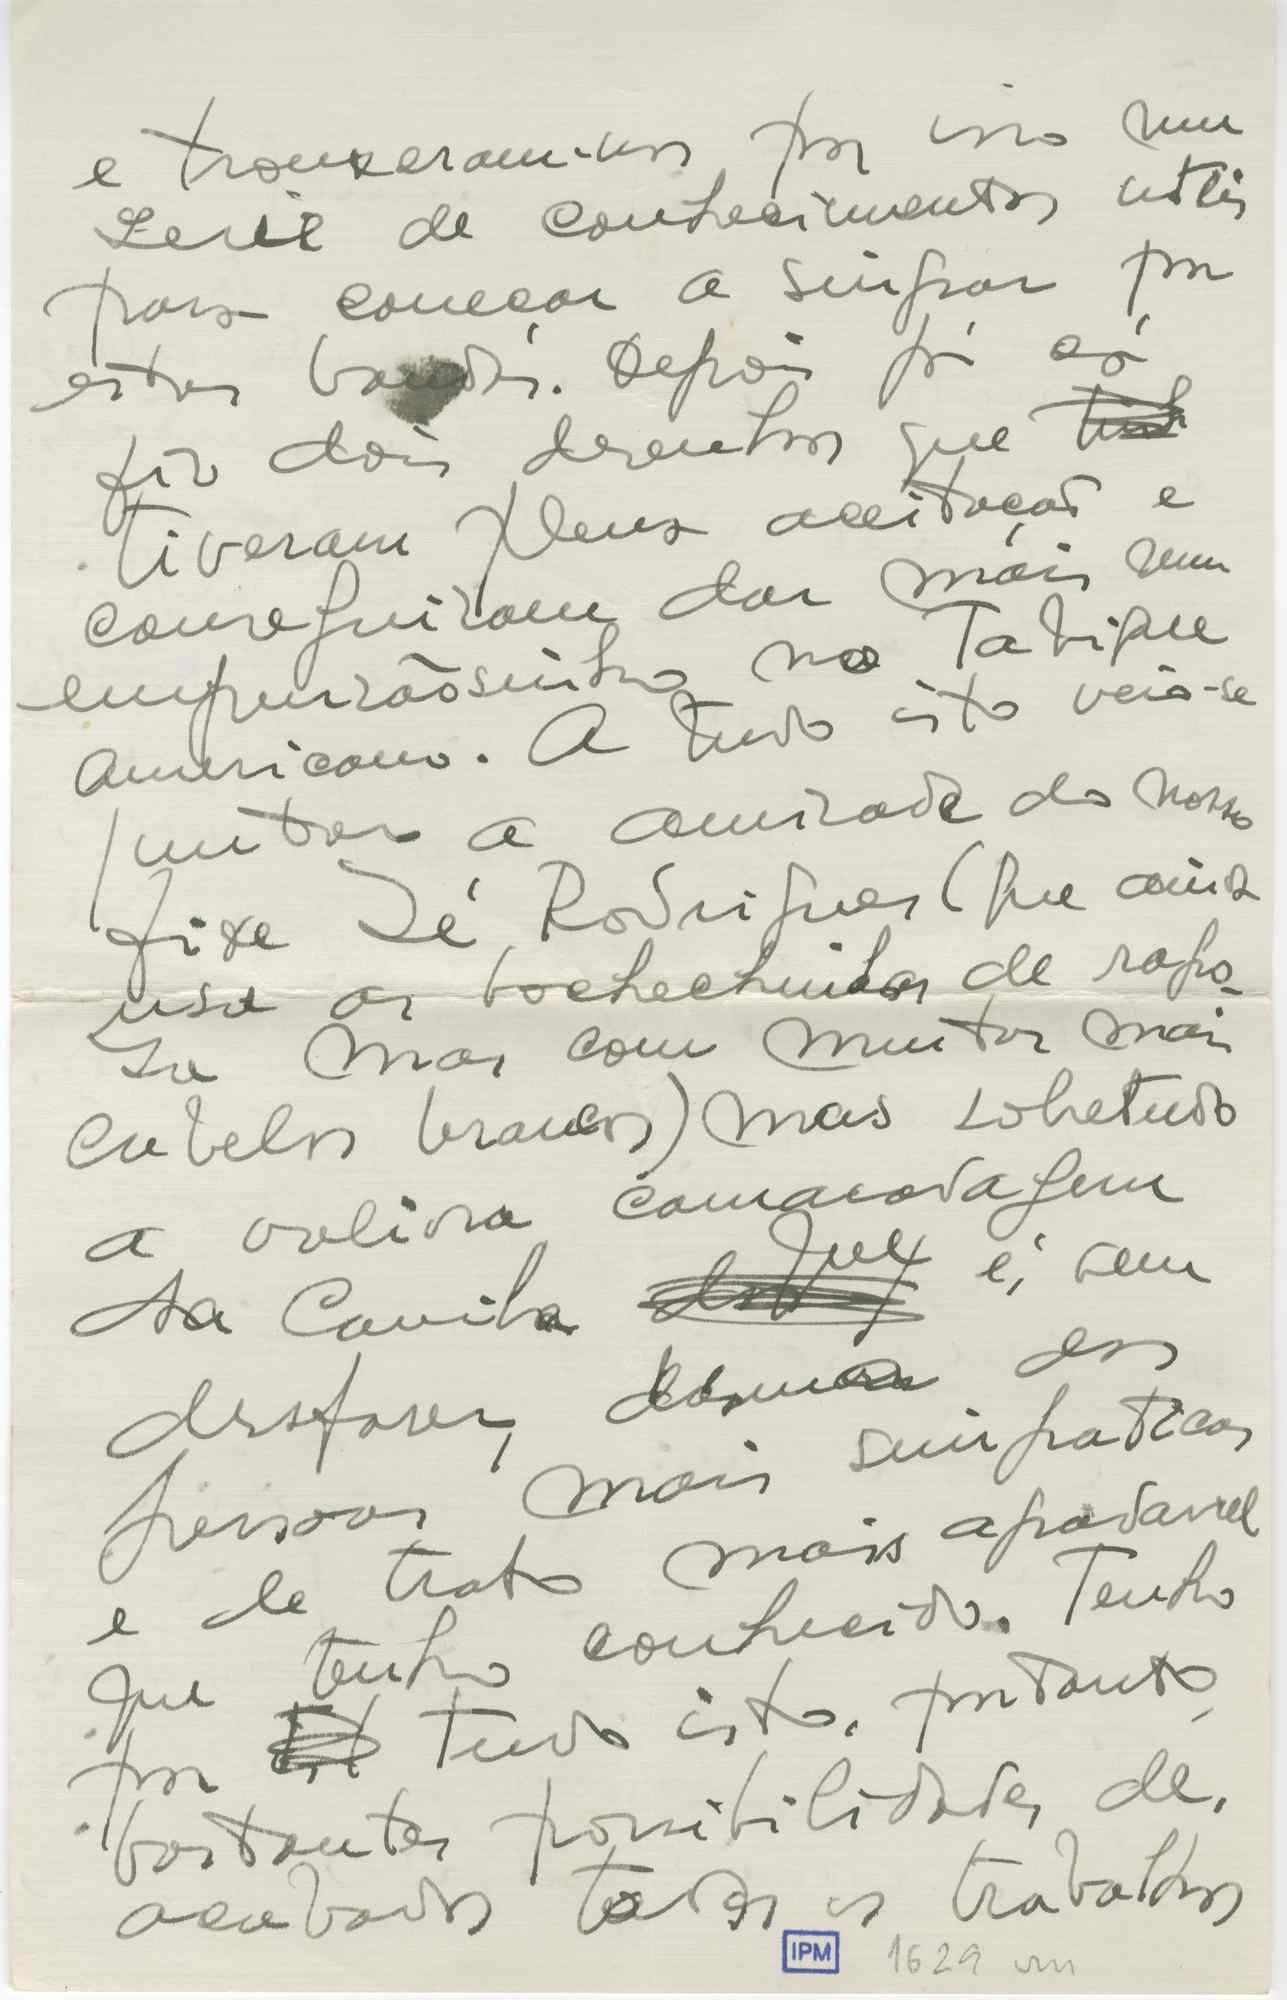 e trouxeram-nos por isso uma
serie de conhecimentos uteis
para começar a singrar por
estas bandas. Depois já cá
fiz dois desenhos que
tiveram plena aceitação e
conseguiram dar mais um
empurrãosinho no Tabique
Americano. A tudo isto veio-se
juntar a amizade do nosso
fixe Zé Rodrigues (que ainda
usa as bochechinhas de rapo-
sa mas com muitos mais
cabelos brancos) mas sobretudo
a valiosa camaradagem
da Camila que é, sem
desfazer, das
pessoas mais simpaticas
e de trato mais agradavel
que tenho conhecido. Tenho
por tudo isto, portanto,
bastantes possibilidades de,
acabados todos os trabalhos
IPM 1629 vm